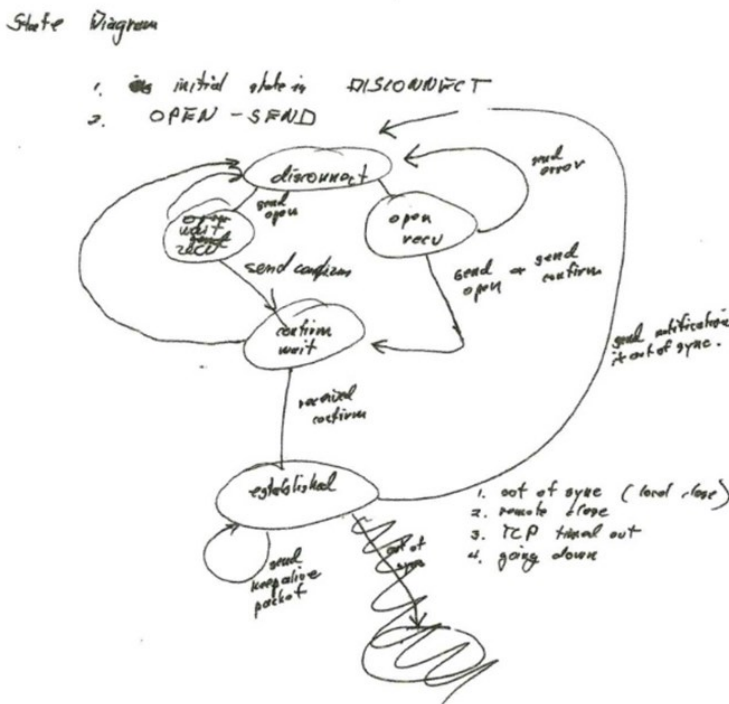 State Diagram
1. initial state is DISCONNECT
2. OPEN - SEND
disconnect
send
error
send
open
wait
recv
open
recv
send confirm
send or send
open confirm
confirm
wait
send notification
if out of sync.
received
confirm
established
1. out of sync (local close)
2. remote close
3. TCP timed out
4. going down
out of
sync
send
keepalive
packet